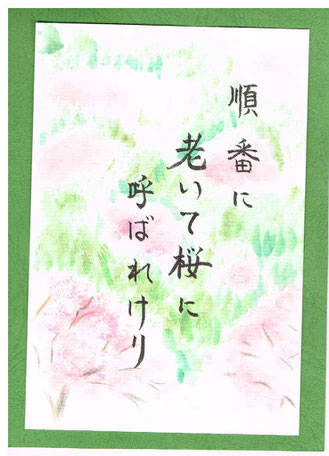 順番に
老いて桜に
呼ばれけり